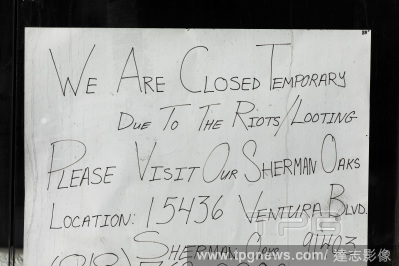 We Are Closed Temporary
Due To The Riots/Looting
Please Visit Our Sherman Oaks
Location: 15436 Ventura Blvd.
Sherman Oaks 91403
(818)
www.ipgnews.com | 達志影像